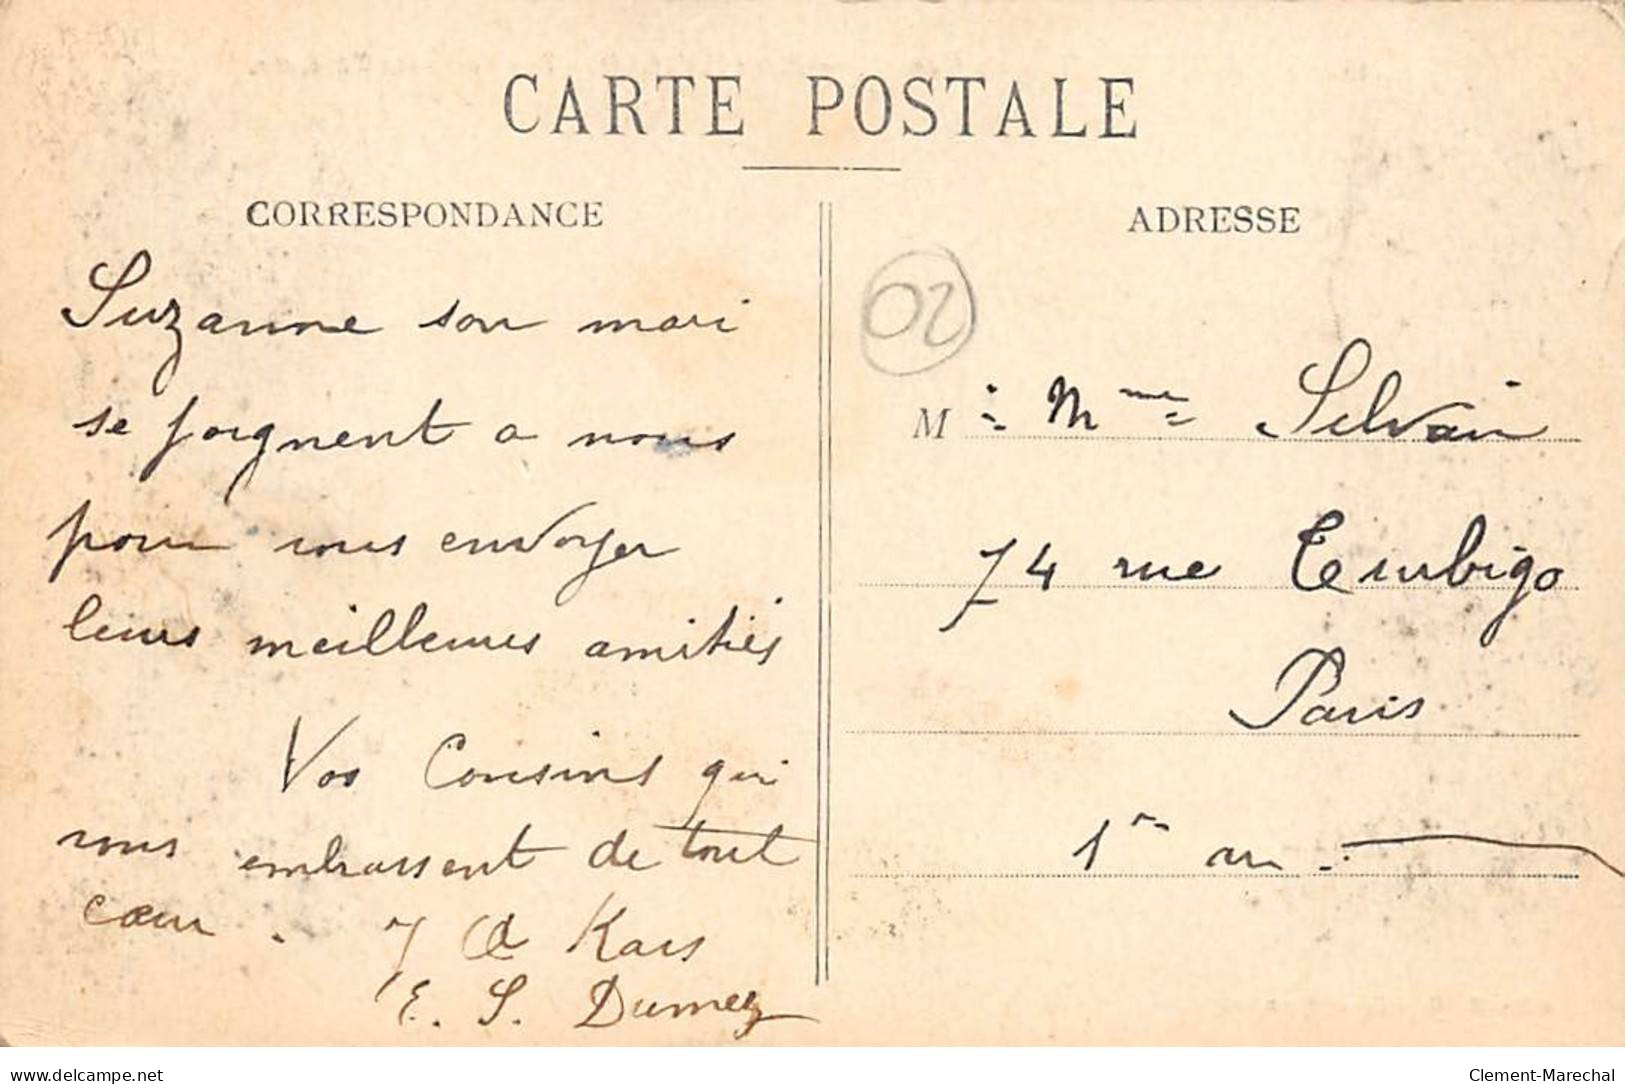 CARTE POSTALE
CORRESPONDANCE
Suzanne son mari
se joignent a nous
pour vous envoyer
leurs meilleures amitiés
Vos Cousins qui
vous embrassent de tout
cœur.
Kars
E. S. Dumez
ADRESSE
02
M : Mme Selvain
74 rue Turbigo
Paris
1er arr.
www.delcampe.net
Clement-Marechal